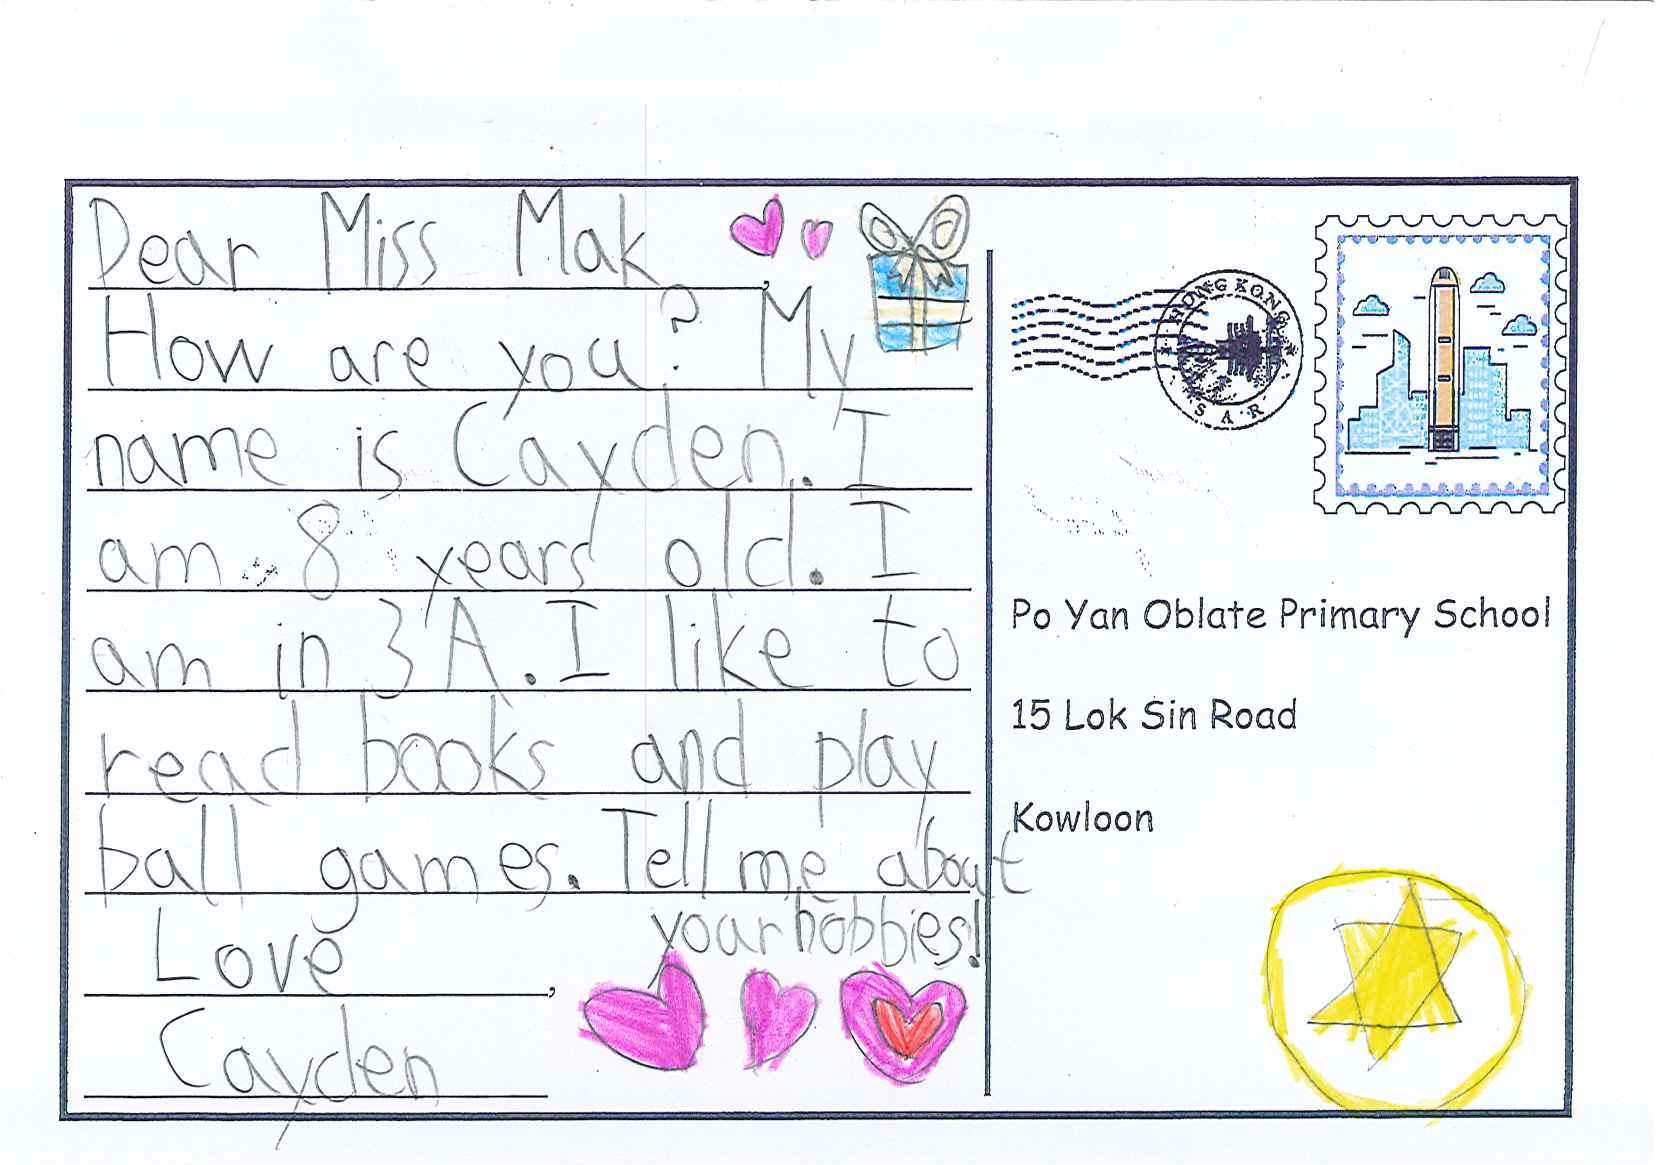 Dear Miss Mak,
How are you? My
name is Cayden. I
am 8 years old. I
am in 3A. I like to
read books and play
ball games. Tell me about
your hobbies!
Love,
Cayden
HONG KONG
S A R
Po Yan Oblate Primary School
15 Lok Sin Road
Kowloon